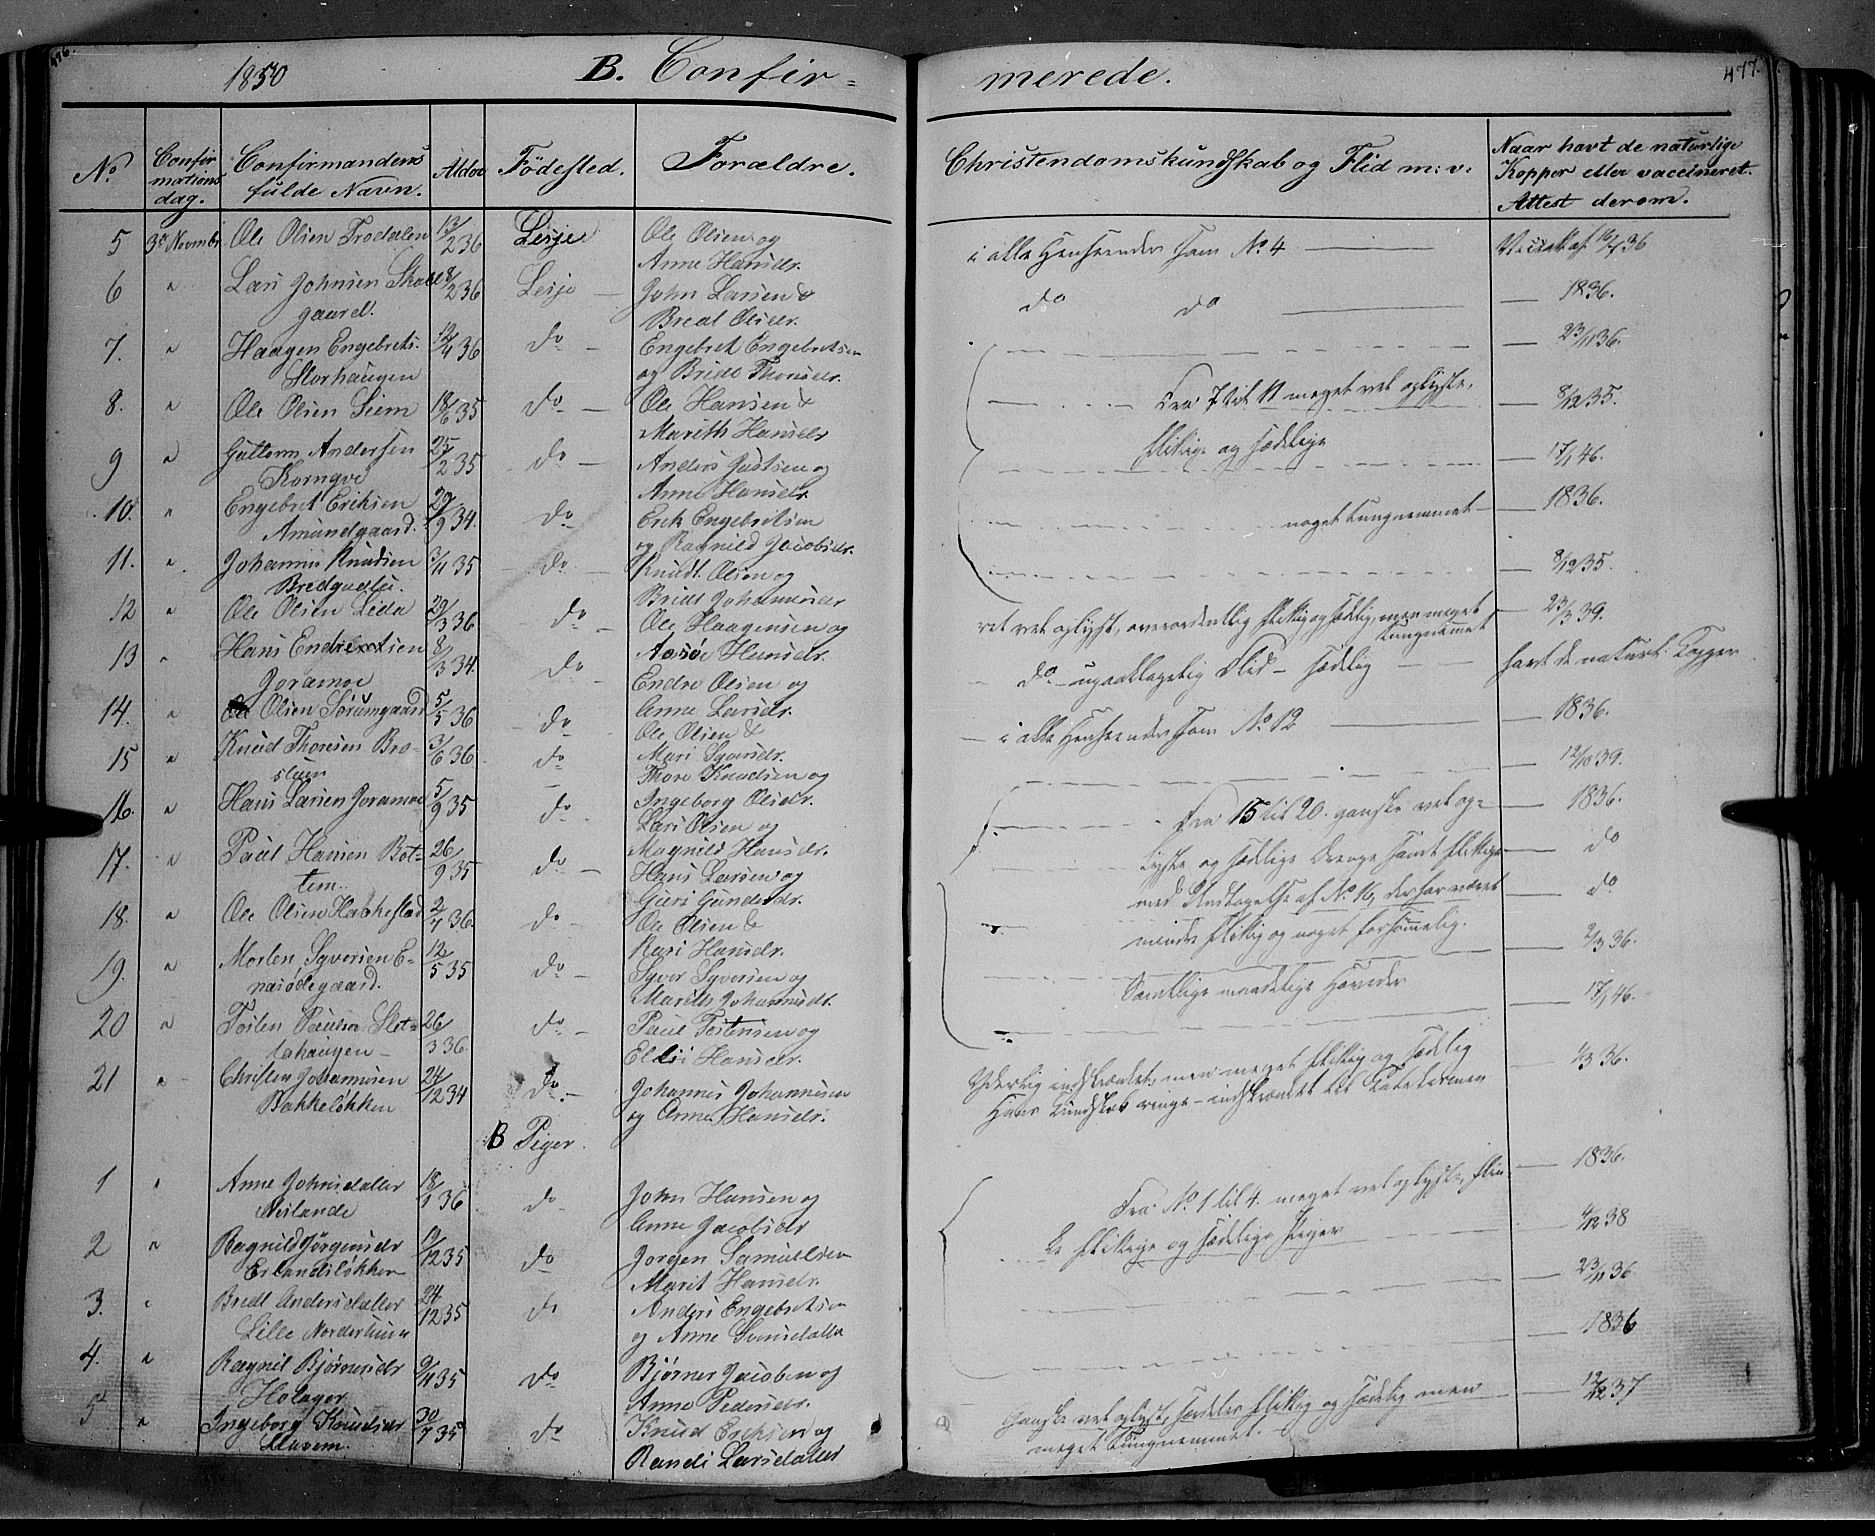 1850 B. Confir=
merede. 477.
No Confirmationsdag. Confirmandens fulde Navn. Alder Fødested. Forældre.
Christendomskundskab og Flid m: v: Naar havt de naturlige Kopper eller vaccineret. Attest derom.
5 3die Novembr Ole Olsen Trodalen 13/2 36 Lesje Ole Olsen og
Anne Hansdr.
i alle Henseender som No 4
6 " Lars Johnsen Skot 8/2 36 Lesje John Larsen &
gaard. Bredt Olsdr.
do do 1836.
7. " Haagen Engebrets. 12/4 36 do Engebret Engebretsen
Storhaugen og Bridt Thorsdr.
23/11 36.
8. " Ole Olsen Siem 18/6 35 do Ole Hansen &
Marith Hansdr
Fra 7 til 11 meget vel oplyste, 8/12 35.
9 " Guttorm Andersen 25/2 35 do Anders Justsen og
Korngve Anne Hansdr.
flittige og sædelige 17/1 46.
10. " Engebret Eriksen 29/9 34. do Erik Engebretsen
Amundgaard. og Ragnild Jacobsdr.
noget tungnemmet 1836.
11. " Johannes Knudsen 3/11 35 do Knudt Olsen og
Bredt Johannesdr
8/12 35.
12 " Ole Olsen Lida 29/3 36 do Ole Haagensen og
ret vel oplyst, overordentlig flittig og sædelig, men meget 23/3 39.
tungnemmet
13 " Hans Endresen 8/3 34. do Endre Olsen og
Joramoe Anne Larsdr.
do upaaklagelig Flid sædelig havt de naturl: Kopper
14. " Ole Olsen Sørumgaard 5/5 36 do Ole Olsen &
Mari Syversdr.
i alle Henseender som No. 12 1836.
15 " Knud Thoresen Bro- 3/6 36 do Thore Knudsen og
stuen Ingeborg Olsdr.
12/10 39.
16. " Hans Larsen Joramoe 5/9 35 do Lars Olsen og
Magnild Hansdr.
Fra 15 til 20. ganske vel op= 1836.
17. " Paul Hansen Bot= 26/9 35 do Hans Larsen og
tem. Guri Gundersdr.
lyste og sædelige Drenge samt flittige do
18. " Ole Olsen Hakkestad 2/7 36. do Ole Olsen &
Kari Hansdr.
med Undtagelse af No. 16, der har været do
mindre flittig og noget forsømmelig.
19. " Morten Syversen E- 12/5 35 do Syver Syversen og
nasødegaard. Marith Johannesdt.
2/3 36.
Samtlige maadelige Hoveder
20 " Tosten Paulsen Slet- 26/3 36 do Paul Tostensen og
tahaugen Eldri Hansdr.
17/1 46.
21 " Christen Johannesen 24/12 34 do Johannes Johannesen
Bakkeløkken og Anne Hansdr.
Yderlig indskrænket, men meget flittig og sædelig 1/3 36.
Hans Kundskab ringe - indskrænket til Katekismen
B Piger.
1 " Anne Johnsdatter 18/1 36 do John Hansen og
Anne Jacobsdr
Fra No. 1 til 4. meget vel oplyste, 1836.
2 " Ragnild Jørgensdr 19/12 35 do Jørgen Samuelsen
Erlandsløkken Marit Hansdr.
flittige og sædelige Piger 4/12 38
3. " Bredt Andersdatter 24/12 35 do Anders Engebretsen
Lille Norderhuus og Anne Svensdatter
23/11 36
4. " Ragnil Bjørnersdr 9/11 35 do Bjørner Jacobsen og
Holager Anne Pedersdr.
1836
5 " Ingeborg Knudsdr 30/7 35 do Knud Eriksen og
Randi Larsdatter
Ganske vel oplyst, særdeles flittig og sædelig men 12/12 37
meget tungnemmet.